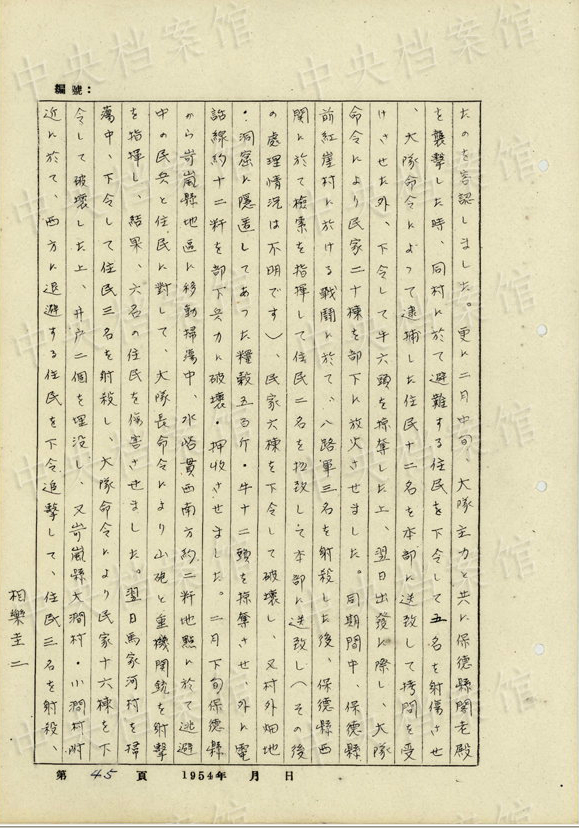 編號：
たのを容認しました。更に二月中旬、大隊主力と共に保德縣閻老殿
を襲擊した時、同村に於て避難する住民を下令して五名を射傷させ
、大隊命令によつて逮捕した住民十二名を本部に送致して拷問を受
けさせた外、下令して牛六頭を掠奪した上、翌日出發に際し、大隊
命令により民家二十棟を部下に放火させました。同期間中、保德縣
前紅崖村に於ける戰鬪に於て、八路軍三名を射殺した後、保德縣西
関に於て檢索を指揮して住民二名を拉致して本部に送致し（その後
の處理情況は不明です）、民家六棟を下令して破壞し、又村外畑地
・洞窟に隱匿してあつた糧穀五百斤・牛十二頭を掠奪させ、外に電
話線約十二粁を部下兵力に破壞・押收させました。二月下旬保德縣
から岢嵐縣地區に移動掃蕩中、水峪貫西南方約二粁地點に於て逃避
中の民兵と住民に對して、大隊長命令により山砲と重機関銃を射擊
を指揮し、結果、六名の住民を傷害させました。翌日馬家河村を掃
蕩中、下令して住民三名を射殺し、大隊命令により民家十六棟を下
令して破壞した上、井戸二個を埋没し、又岢嵐縣大澗村・小澗村附
近に於て、西方に退避する住民を下令追擊して、住民三名を射殺、
相樂圭二
第 45 頁 1954年 月 日
中央档案馆